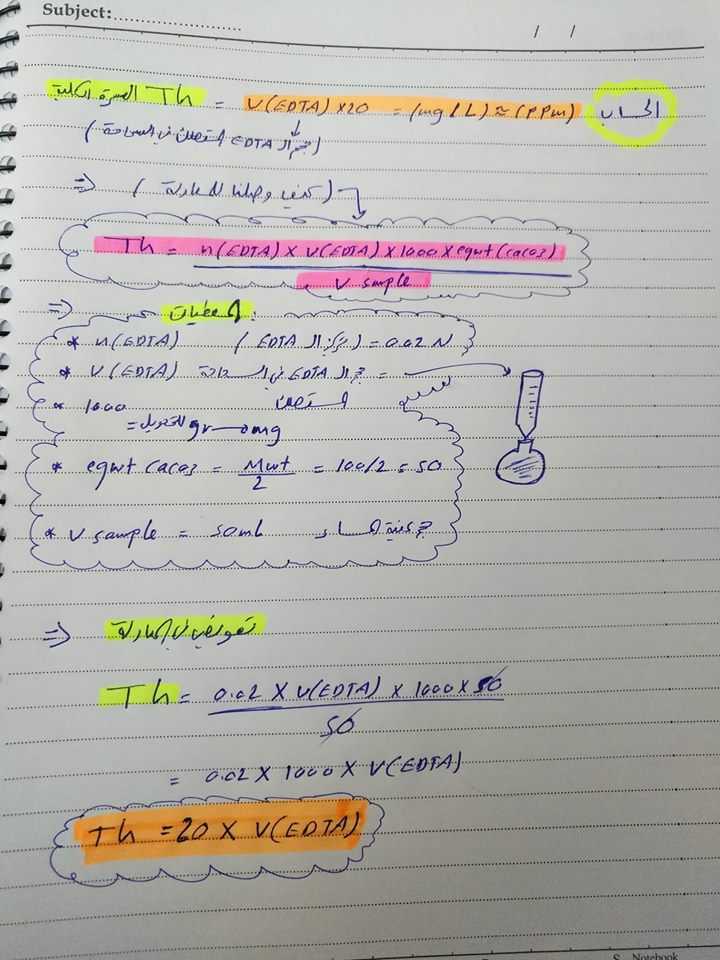 Subject:
/ /
الحساب العسرة الكلية Th = V(EDTA) x20 = (mg/L) ≈ (PPm)
(حجم الـ EDTA المستهلك في المعايرة)
⇒ (كيف وصلنا للمعادلة)
Th = n(EDTA) x V(EDTA) x 1000 x eqwt(caco3)
V smple
⇒ المعطيات:
* n(EDTA) (تركيز الـ EDTA) = 0.02 N
* V(EDTA) = حجم الـ EDTA في السحاحة
المستهلك
* 1000
= للتحويل gr → mg
* eqwt caco3 = Mwt = 100/2 = 50
2
* V sample = 50mL حجم عينة الماء
⇒ تعويض في المعادلة
Th = 0.02 X V(EDTA) x 1000 X 50
50
= 0.02 X 1000 X V(EDTA)
Th = 20 X V(EDTA)
Notebook